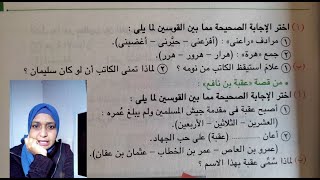 (١) اختر الإجابة الصحيحة مما بين القوسين لما يلى :
١ مرادف «راعنى» : (أفزعنى - حيّرنى - أغضبنى).
٢ جمع «هرة» : (هرار - هرور - هرر).
(ب) ١ علامَ استيقظ الكاتب من نومه ؟ ٢ لماذا تمنى الكاتب أن لو كان سليمان ؟
• من قصة «عقبة بن نافع» •
(١) اختر الإجابة الصحيحة مما بين القوسين لما يلى :
١ أصبح عقبة فى مقدمة جيش المسلمين ولم يبلغ عُمره :
(العشرين - الثلاثين - الأربعين).
٢ أعان ........ (عقبة) على حب الجهاد.
(عمرو بن العاص - عمر بن الخطاب - عثمان بن عفان).
(ب) لماذا سُمِّى عقبة بهذا الاسم ؟